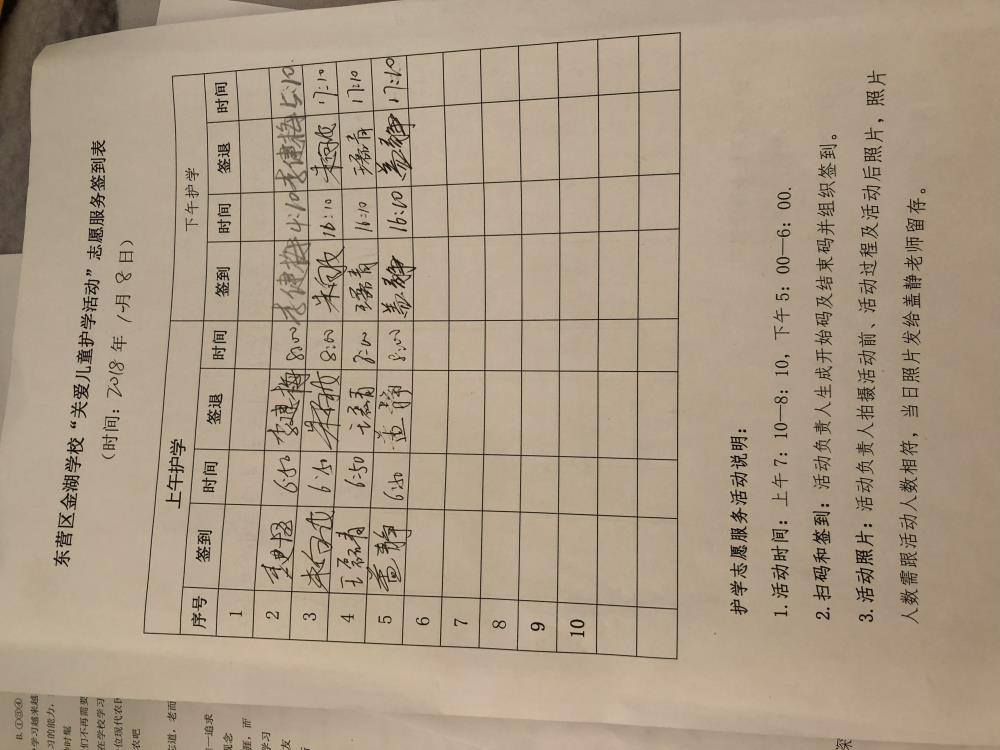 东营区金湖学校“关爱儿童护学活动”志愿服务签到表
（时间：2018 年 月 8 日）
上午护学 下午护学
序号 签到 时间 签退 时间 签到 时间 签退 时间
1
2 6:50 李建梅 8:00 李建梅 4:10 李建梅 5:10
3 朱向波 6:50 朱向波 8:00 朱向波 16:10 朱向波 17:10
4 王磊青 6:50 王磊青 8:00 王磊青 16:10 王磊青 17:10
5 盖静 6:50 盖静 8:00 盖静 16:10 盖静 17:10
6
7
8
9
10
护学志愿服务活动说明：
1.活动时间：上午 7：10—8：10，下午 5：00—6：00.
2.扫码和签到：活动负责人生成开始码及结束码并组织签到。
3.活动照片：活动负责人拍摄活动前、活动过程及活动后照片，照片
人数需跟活动人数相符，当日照片发给盖静老师留存。
B. ①③④